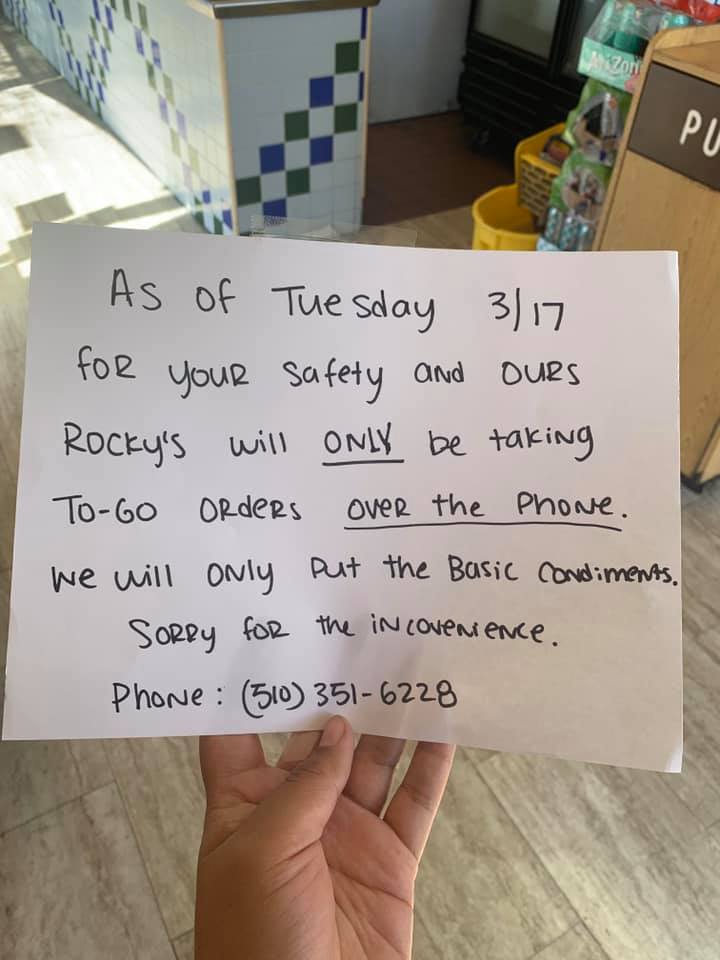 AriZona
PU
As of Tuesday 3/17
for your safety and ours
Rocky's will ONLY be taking
To-Go orders over the Phone.
We will only put the Basic Condiments.
Sorry for the incovenience.
Phone: (510) 351-6228